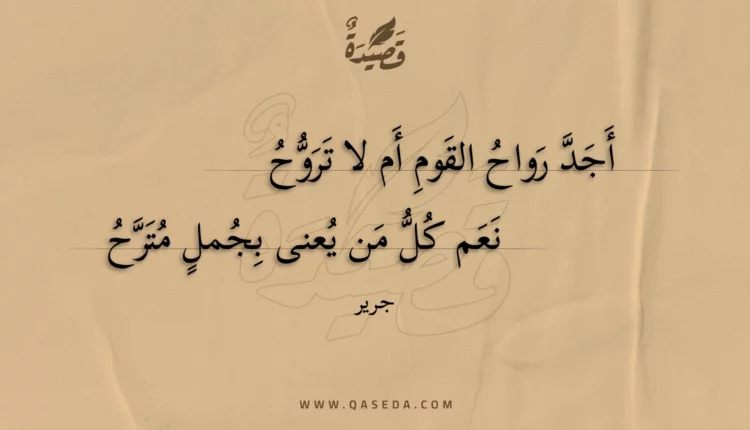 قَصِيدَةٌ
أَجَدَّ رَواحُ القَومِ أَم لا تَرَوُّحُ
نَعَم كُلُّ مَن يُعنى بِجُملٍ مُتَرَّحُ
جرير
WWW.QASEDA.COM